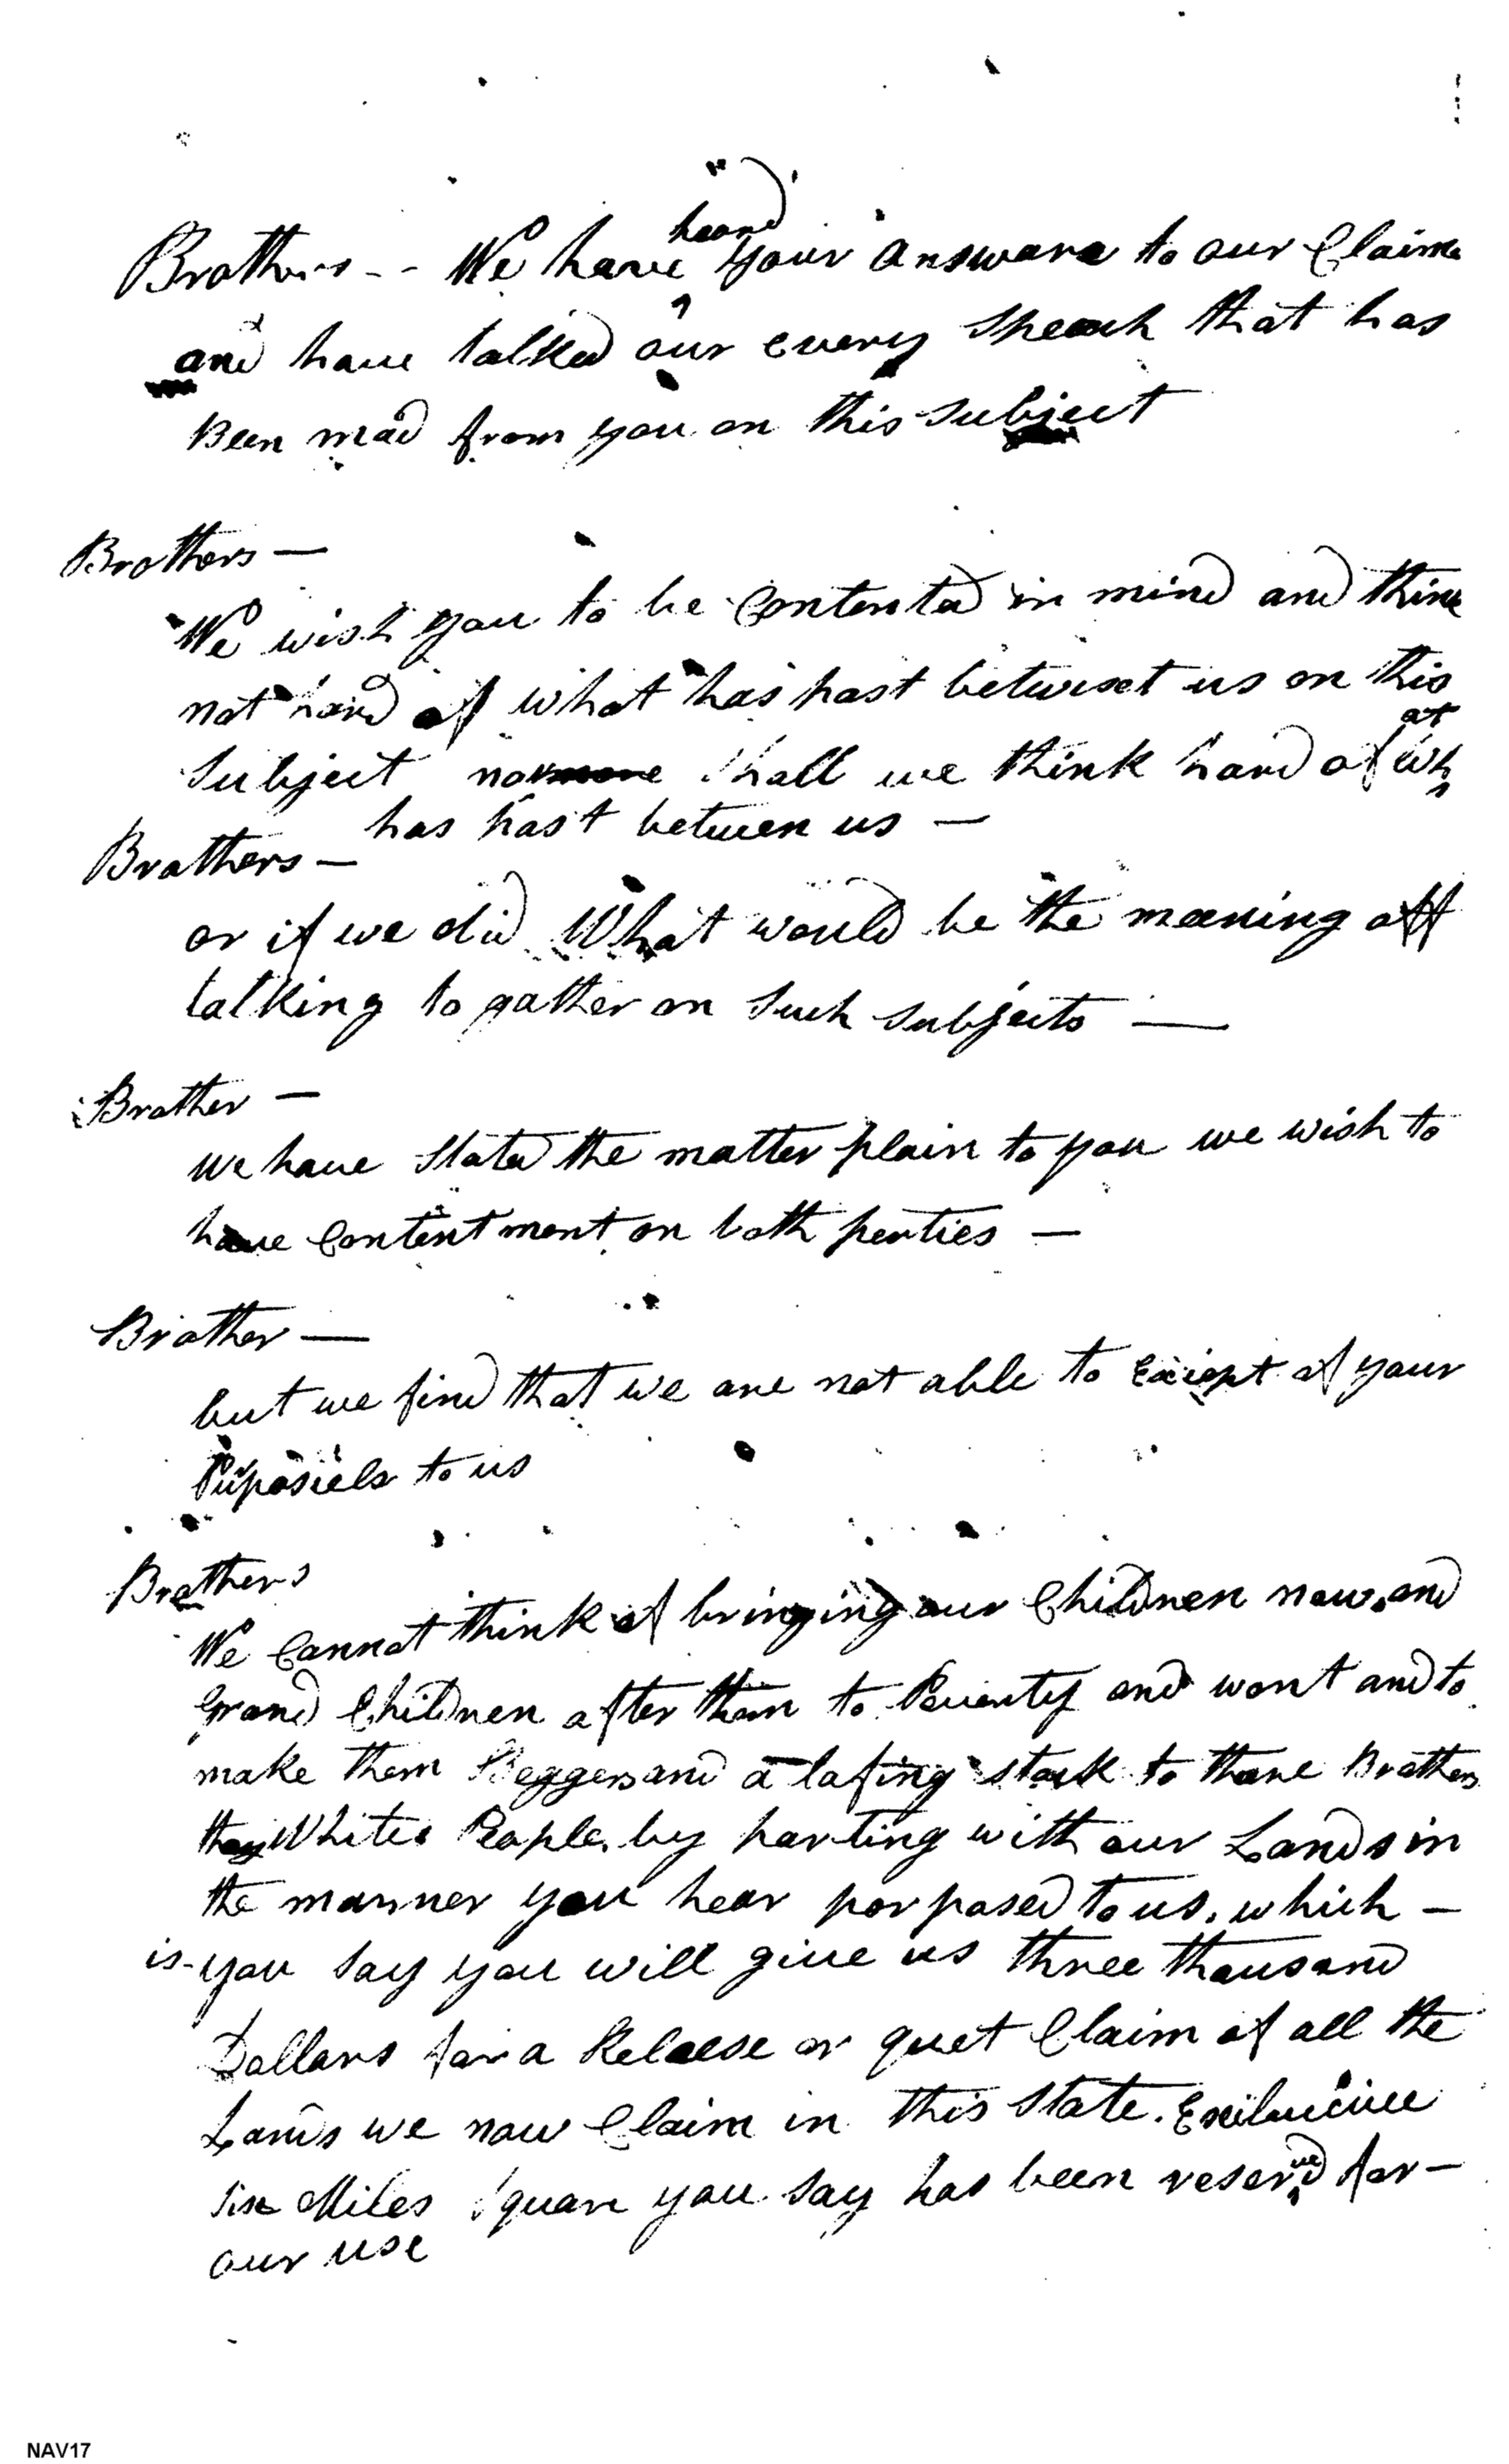 Brothers -- We have heard your answare to our Claime
and have talked our every Speach that has
Been mad from you on this Subject
Brothers —
We wish you to be Contented in mind and think
not hard of what has past betwixt us on this
Subject nor shall we think hard of what
has past between us —
Brothers —
or if we did What would be the meening off
talking to gather on Such Subjects —
Brother —
we have Stated the matter plain to you we wish to
have Contentment on both perties —
Brother —
but we find that we are not able to Except of your
to us
Brothers
We Cannot think of bringing our Children now and
Grand Children after tham to Poverty and want and to
make them Beggers and a lafing stock to thare Brothers
they White People by parting with our Lands in
the manner you hear porposed to us. which —
is - you Say you will give us three thousand
Dollars for a Relaese or quet Claim of all the
Lands we now Claim in this State.
Six Miles Square you Say has been reserved for —
our use
NAV17